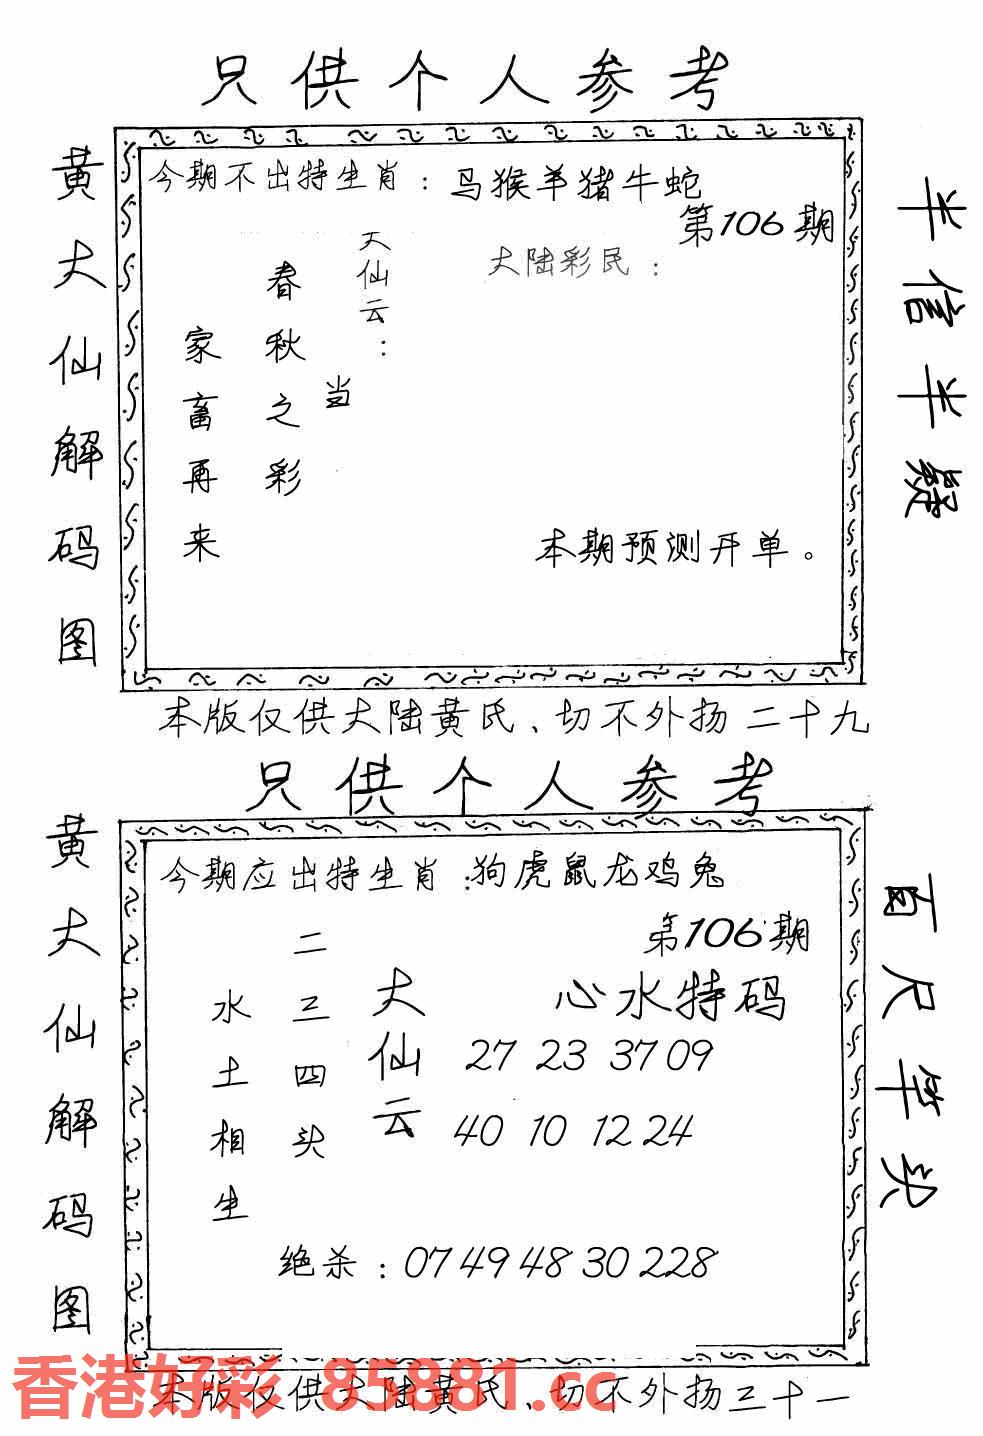 只供个人参考
黄大仙解码图
今期不出特生肖：马猴羊猪牛蛇
第106期
大陆彩民：
天仙云：
当
春秋之彩
家畜再来
本期预测开单。
半信半疑
本版仅供大陆黄氏、切不外扬二十九
只供个人参考
黄大仙解码图
今期应出特生肖：狗虎鼠龙鸡兔
第106期
心水特码
大仙云
27 23 37 09
40 10 12 24
二三四头
水土相生
绝杀：07 49 48 30 228
百尺竿头
本版仅供大陆黄氏、切不外扬三十一
香港好彩 85881.cc